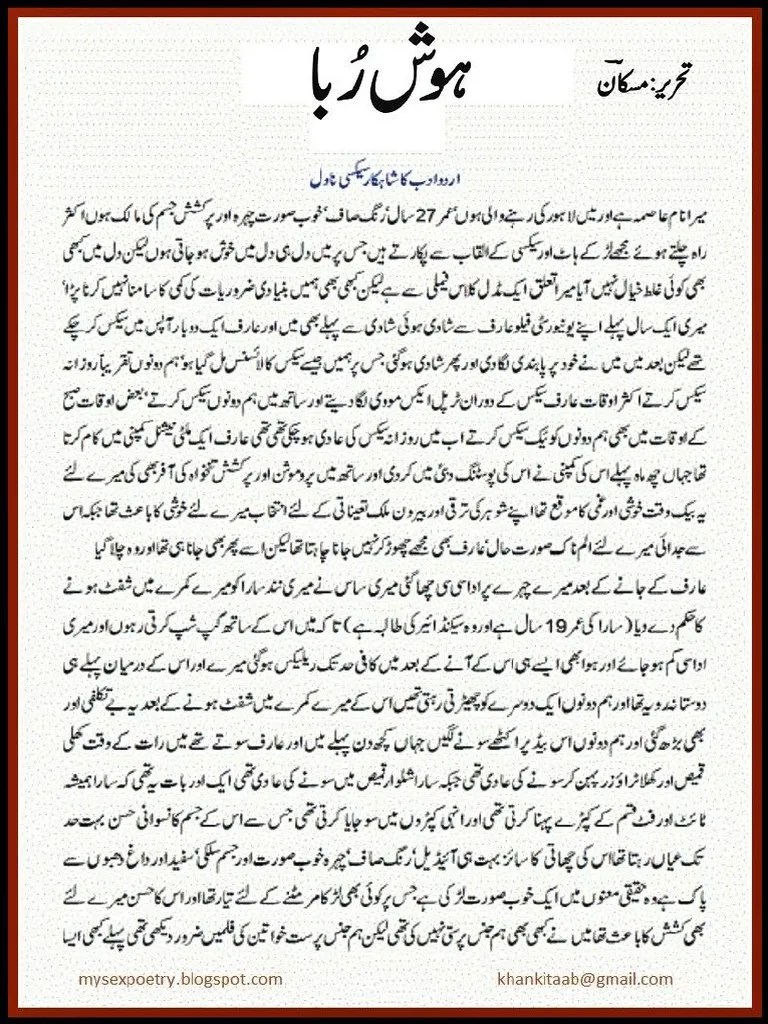 ہوش رُبا
تحریر: مسکان
اردو ادب کا شاہکار سیکسی ناول
میرا نام عاصمہ ہے اور میں لاہور کی رہنے والی ہوں‘ عمر 27 سال‘ رنگ صاف‘ خوب صورت چہرہ اور پر کشش جسم کی مالک ہوں اکثر
راہ چلتے ہوئے مجھے لڑکے ہاٹ اور سیکسی کے القاب سے پکارتے ہیں جس پر میں دل ہی دل میں خوش ہوجاتی ہوں لیکن دل میں کبھی
بھی کوئی غلط خیال نہیں آیا میرا تعلق ایک مڈل کلاس فیملی سے ہے لیکن کبھی بھی ہمیں بنیادی ضروریات کی کمی کا سامنا نہیں کرنا پڑا‘
میری ایک سال پہلے اپنے یونیورسٹی فیلو عارف سے شادی ہوئی شادی سے پہلے بھی میں اور عارف ایک دو بار آپس میں سیکس کر چکے
تھے لیکن بعد میں میں نے خود پر پابندی لگا دی اور پھر شادی ہوگئی جس پر ہمیں جیسے سیکس کا لائسنس مل گیا ہو‘ ہم دونوں تقریباً روزانہ
سیکس کرتے اکثر اوقات عارف سیکس کے دوران ٹرپل ایکس مووی لگا دیتے اور ساتھ میں ہم دونوں سیکس کرتے‘ بعض اوقات صبح
کے اوقات میں بھی ہم دونوں کوئیک سیکس کرتے اب میں روزانہ سیکس کی عادی ہوچکی تھی تھی عارف ایک ملٹی نیشنل کمپنی میں کام کرتا
تھا جہاں چھ ماہ پہلے اس کی کمپنی نے اس کی پوسٹنگ دبئی میں کردی اور ساتھ میں پروموشن اور پر کشش تنخواہ کی آفر بھی کی میرے لئے
یہ بیک وقت خوشی اور غمی کا موقع تھا اپنے شوہر کی ترقی اور بیرون ملک تعیناتی کے لئے انتخاب میرے لئے خوشی کا باعث تھا جبکہ اس
سے جدائی میرے لئے الم ناک صورت حال‘ عارف بھی مجھے چھوڑ کر نہیں جانا چاہتا تھا لیکن اسے پھر بھی جانا ہی تھا اور وہ چلا گیا
عارف کے جانے کے بعد میرے چہرے پر اداسی سی چھا گئی میری ساس نے میری نند سارا کو میرے کمرے میں شفٹ ہونے
کا حکم دے دیا (سارا کی عمر 19 سال ہے اور وہ سیکنڈ ائیر کی طالبہ ہے) تاکہ میں اس کے ساتھ گپ شپ کرتی رہوں اور میری
اداسی کم ہوجائے اور ہوا بھی ایسے ہی اس کے آنے کے بعد میں کافی حد تک ریلیکس ہوگئی میرے اور اس کے درمیان پہلے ہی
دوستانہ رویہ تھا اور ہم دونوں ایک دوسرے کو چھیڑتی رہتی تھیں اس کے میرے کمرے میں شفٹ ہونے کے بعد یہ بے تکلفی اور
بھی بڑھ گئی اور ہم دونوں اس بیڈ پر اکٹھے سونے لگیں جہاں کچھ دن پہلے میں اور عارف سوتے تھے میں رات کے وقت کھلی
قمیص اور کھلا ٹراؤزر پہن کر سونے کی عادی تھی جبکہ سارا شلوار قمیص میں سونے کی عادی تھی ایک اور بات یہ تھی کہ سارا ہمیشہ
ٹائٹ اور فٹ قسم کے کپڑے پہنا کرتی تھی اور انہی کپڑوں میں سوجایا کرتی تھی جس سے اس کے جسم کا نسوانی حسن بہت حد
تک عیاں رہتا تھا اس کی چھاتی کا سائز بہت ہی آئیڈیل‘ رنگ صاف‘ چہرہ خوب صورت اور جسم سلکی‘ سفید اور داغ دھبوں سے
پاک ہے وہ حقیقی معنوں میں ایک خوب صورت لڑکی ہے جس پر کوئی بھی لڑکا مر مٹنے کے لئے تیار تھا اور اس کا حسن میرے لئے
بھی کشش کا باعث تھا میں نے کبھی بھی ہم جنس پرستی نہیں کی تھی لیکن ہم جنس پرست خواتین کی فلمیں ضرور دیکھی تھی پہلے کبھی ایسا
mysexpoetry.blogspot.com
khankitaab@gmail.com